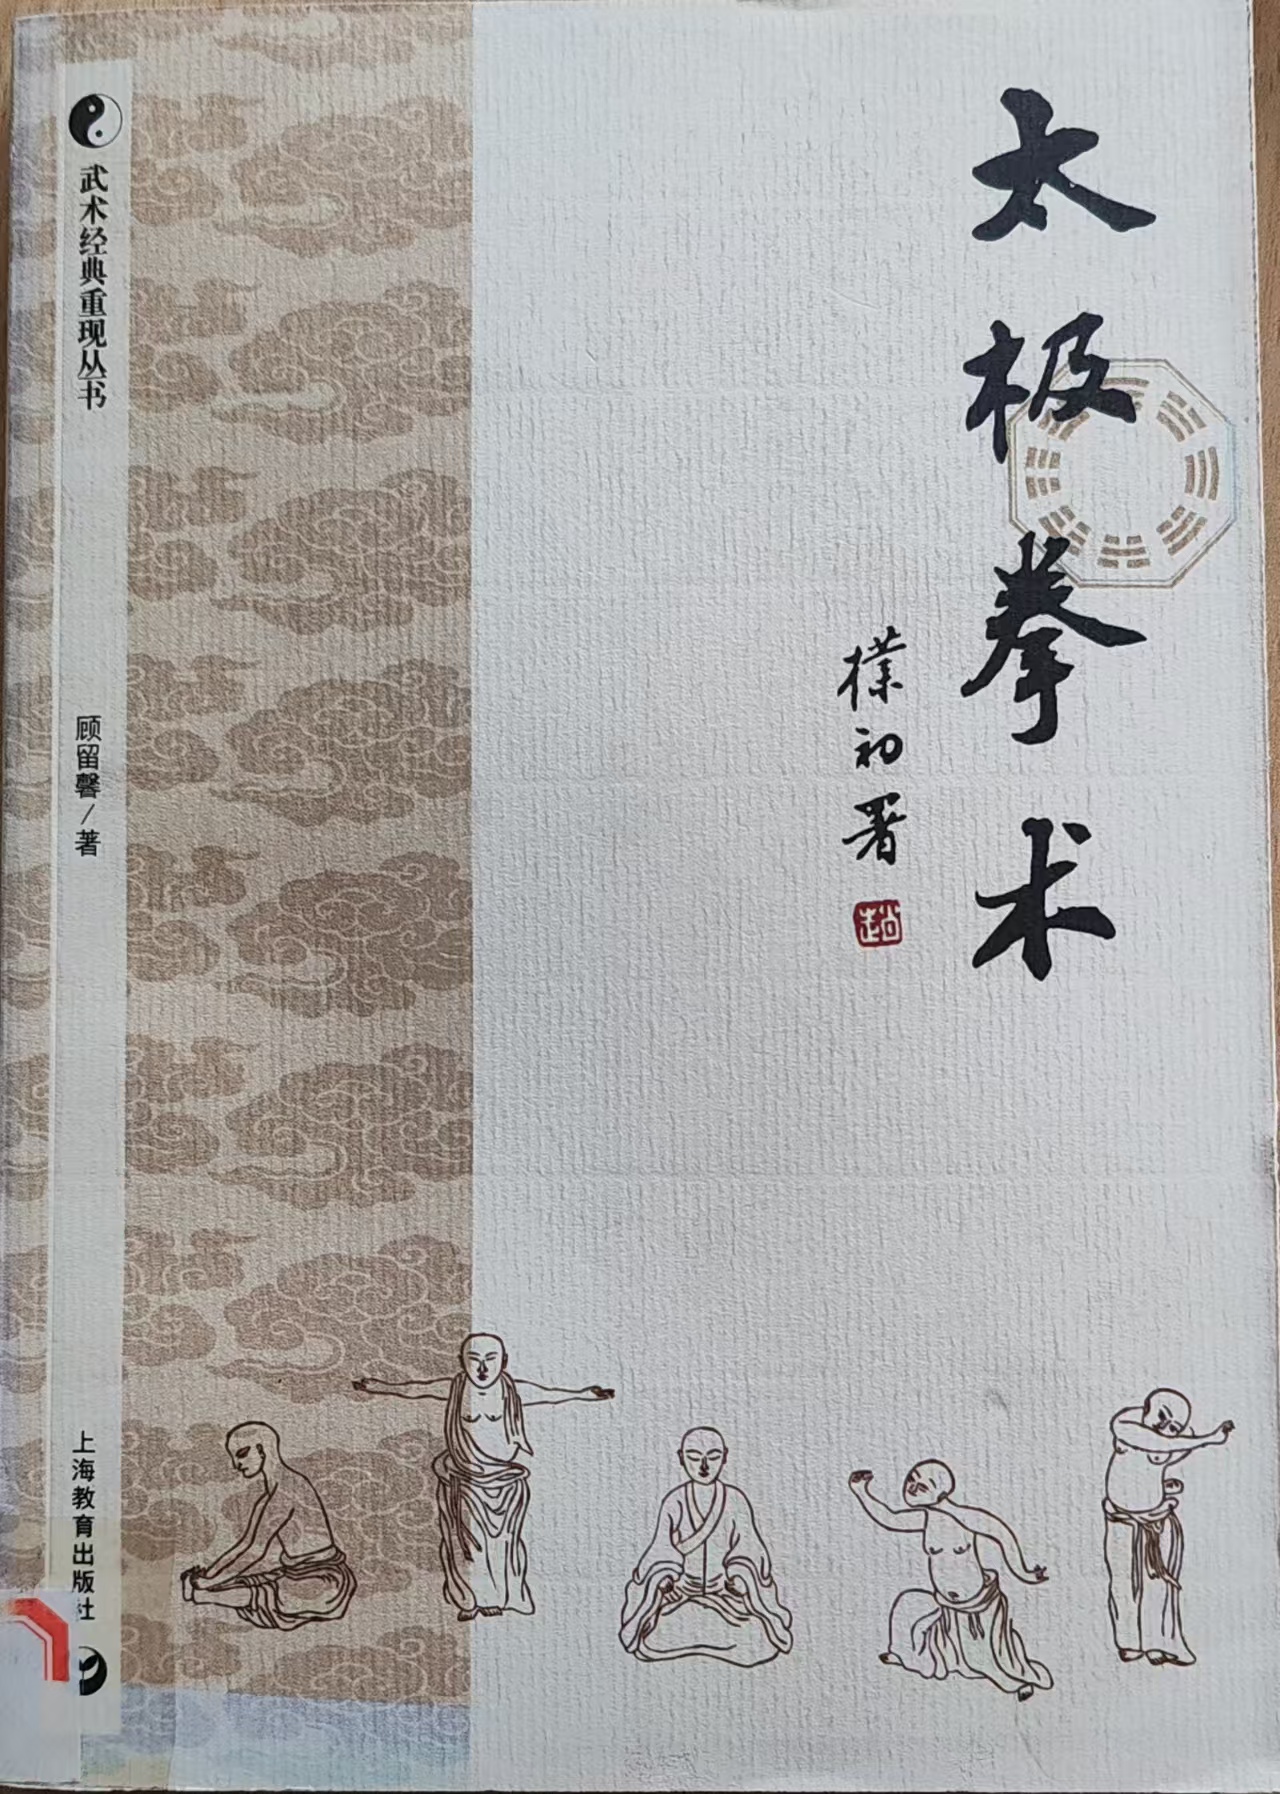 太极拳术
樸初署
武术经典重现丛书
顾留馨/著
上海教育出版社